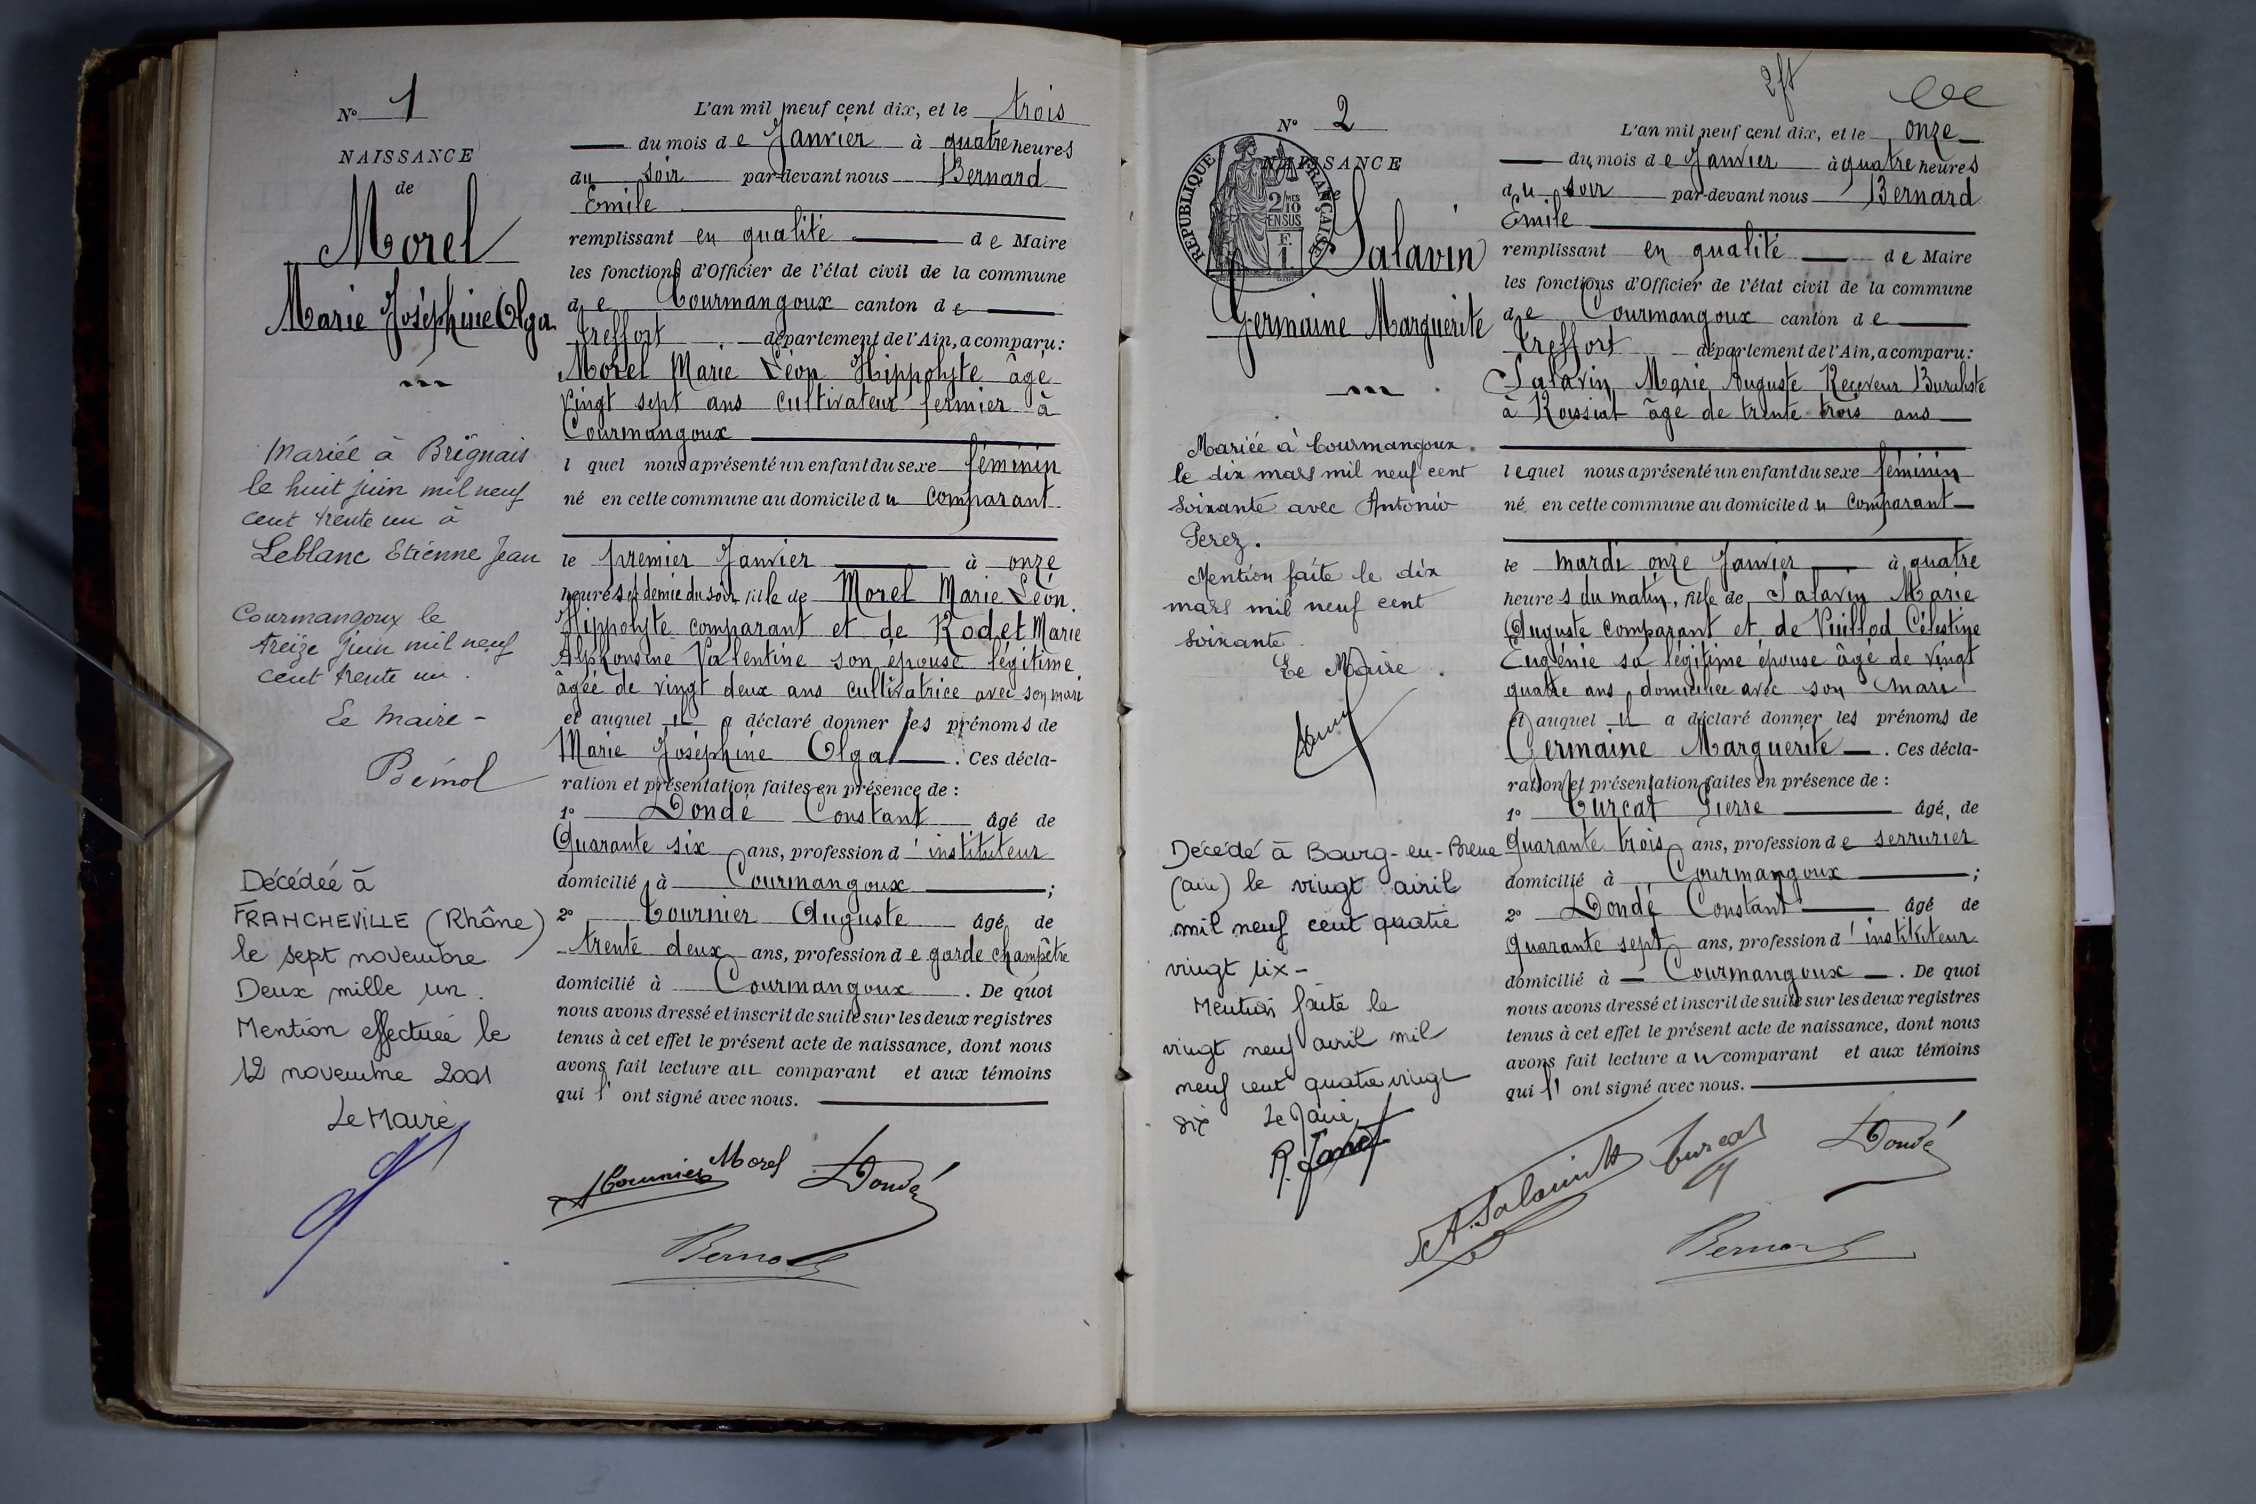 N° 1
NAISSANCE
de
Morel
Marie Joséphine Olga
Mariée à Brignais
le huit juin mil neuf
cent trente un à
Leblanc Etienne Jean
Courmangoux le
treize juin mil neuf
cent trente un.
Le Maire -
Décédée à
FRANCHEVILLE (Rhône)
le sept novembre
Deux mille un.
Mention effectuée le
12 novembre 2001
Le Maire
L'an mil neuf cent dix, et le trois
du mois de Janvier à quatre heures
du soir par-devant nous Bernard
Emile
remplissant en qualité de Maire
les fonctions d'Officier de l'état civil de la commune
de Courmangoux canton de
Treffort département de l'Ain, a comparu:
Morel Marie Léon Hippolyte âgé
vingt sept ans cultivateur fermier à
Courmangoux
l quel nous a présenté un enfant du sexe féminin
né en cette commune au domicile du comparant
le premier Janvier à onze
heures et demie du soir, fille de Morel Marie Léon
Hippolyte comparant et de Rodet Marie
Alphonsine Valentine son épouse légitime
âgée de vingt deux ans cultivatrice avec son mari
et auquel il a déclaré donner les prénoms de
Marie Joséphine Olga. Ces décla-
ration et présentation faites en présence de :
1° Dondé Constant âgé de
Quarante six ans, profession d'instituteur
domicilié à Courmangoux ;
2° Tournier Auguste âgé de
trente deux ans, profession de garde champêtre
domicilié à Courmangoux. De quoi
nous avons dressé et inscrit de suite sur les deux registres
tenus à cet effet le présent acte de naissance, dont nous
avons fait lecture au comparant et aux témoins
qui l' ont signé avec nous.
Tournier Morel Dondé
Bernard
2ft
N° 2
NAISSANCE
RÉPUBLIQUE FRANÇAISE
2/10 MES
EN SUS
F.
1.
Salavin
Germaine Marguerite
Mariée à Courmangoux
le dix mars mil neuf cent
soixante avec Antonio
Perez.
Mention faite le dix
mars mil neuf cent
soixante
Le Maire.
Décédé à Bourg-en-Bresse
(ain) le vingt avril
mil neuf cent quatre
vingt six -
Mention faite le
vingt neuf avril mil
neuf cent quatre vingt
six Le Maire
L'an mil neuf cent dix, et le onze
du mois de Janvier à quatre heures
du soir par-devant nous Bernard
Emile
remplissant en qualité de Maire
les fonctions d'Officier de l'état civil de la commune
de Courmangoux canton de
Treffort département de l'Ain, a comparu:
Salavin Marie Auguste Receveur Buraliste
à Roissiat âgé de trente trois ans
lequel nous a présenté un enfant du sexe féminin
né en cette commune au domicile du comparant
le mardi onze Janvier à quatre
heures du matin, fille de Salavin Marie
Auguste comparant et de Vuillod Célestine
Eugénie sa légitime épouse âgé de vingt
quatre ans domiciliée avec son mari
et auquel il a déclaré donner les prénoms de
Germaine Marguerite. Ces décla-
ration et présentation faites en présence de :
1° Curcat Pierre âgé de
Quarante trois ans, profession de serrurier
domicilié à Courmangoux ;
2° Dondé Constant âgé de
Quarante sept ans, profession d'instituteur
domicilié à Courmangoux. De quoi
nous avons dressé et inscrit de suite sur les deux registres
tenus à cet effet le présent acte de naissance, dont nous
avons fait lecture au comparant et aux témoins
qui l' ont signé avec nous.
A. Salavin Curcat Dondé
Bernard